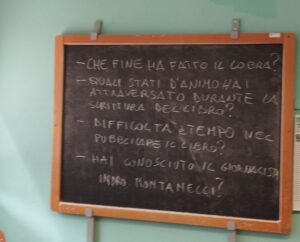 - CHE FINE HA FATTO IL COBRA?
- QUALI STATI D'ANIMO HAI
ATTRAVERSATO DURANTE LA
SCRITTURA DEL LIBRO?
- DIFFICOLTÀ E TEMPO NEL
PUBBLICARE IL LIBRO?
- HAI CONOSCIUTO IL GIORNALISTA
INDRO MONTANELLI?